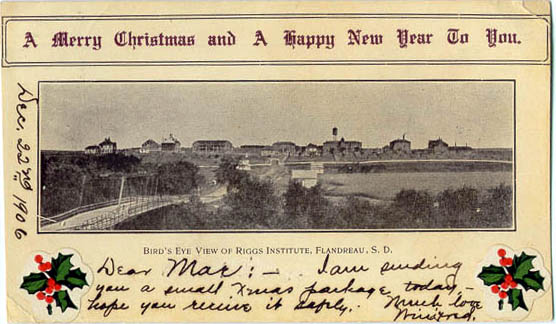 A Merry Christmas and A Happy New Year To You.
Dec. 22nd 1906
BIRD'S EYE VIEW OF RIGGS INSTITUTE, FLANDREAU, S. D.
Dear Mac: - I am sending
you a small Xmas package today, -
hope you receive it safely. Much love
Winifred.